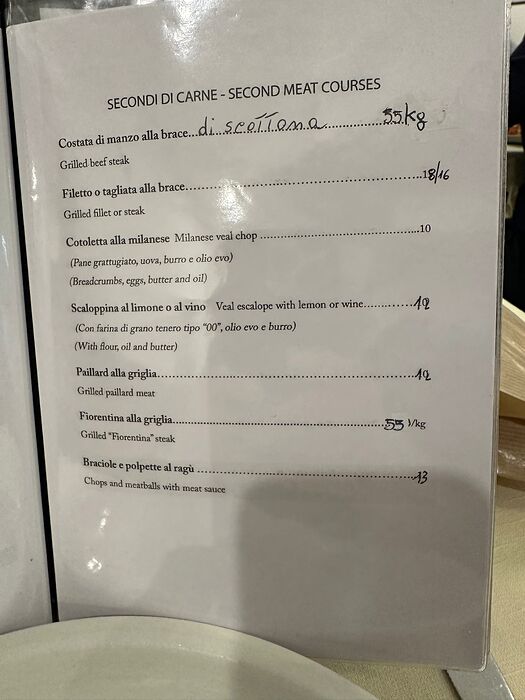 SECONDI DI CARNE - SECOND MEAT COURSES
Costata di manzo alla brace...di scottona..................55kg
Grilled beef steak
Filetto o tagliata alla brace..........................................18/16
Grilled fillet or steak
Cotoletta alla milanese Milanese veal chop ..........................................10
(Pane grattugiato, uova, burro e olio evo)
(Breadcrumbs, eggs, butter and oil)
Scaloppina al limone o al vino Veal escalope with lemon or wine............12
(Con farina di grano tenero tipo "00", olio evo e burro)
(With flour, oil and butter)
Paillard alla griglia..........................................................12
Grilled paillard meat
Fiorentina alla griglia..................................................55 /kg
Grilled "Fiorentina" steak
Braciole e polpette al ragù ..................................................13
Chops and meatballs with meat sauce